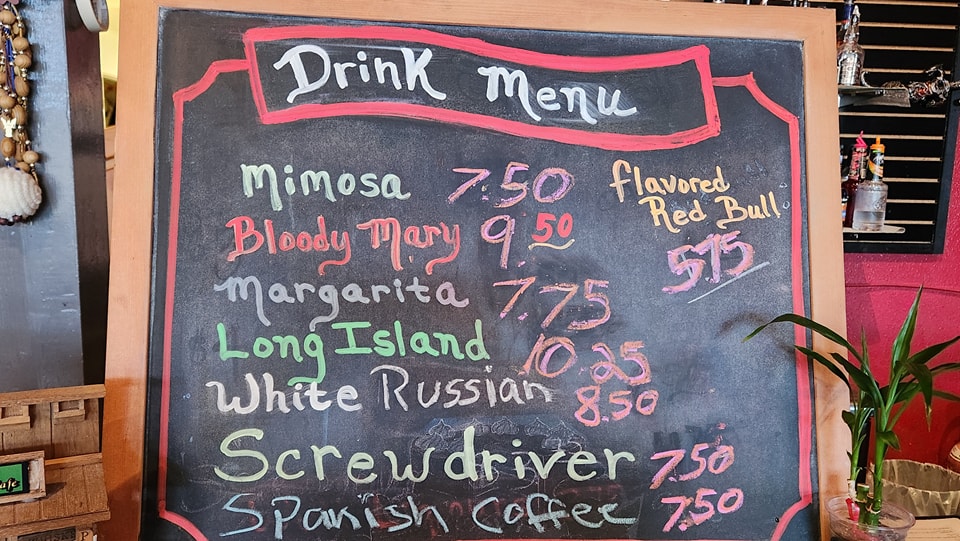 Drink Menu
Mimosa 7.50
Flavored
Red Bull
5.75
Bloody Mary 9.50
Margarita 7.75
Long Island 10.25
White Russian 8.50
Screwdriver 7.50
Spanish Coffee 7.50